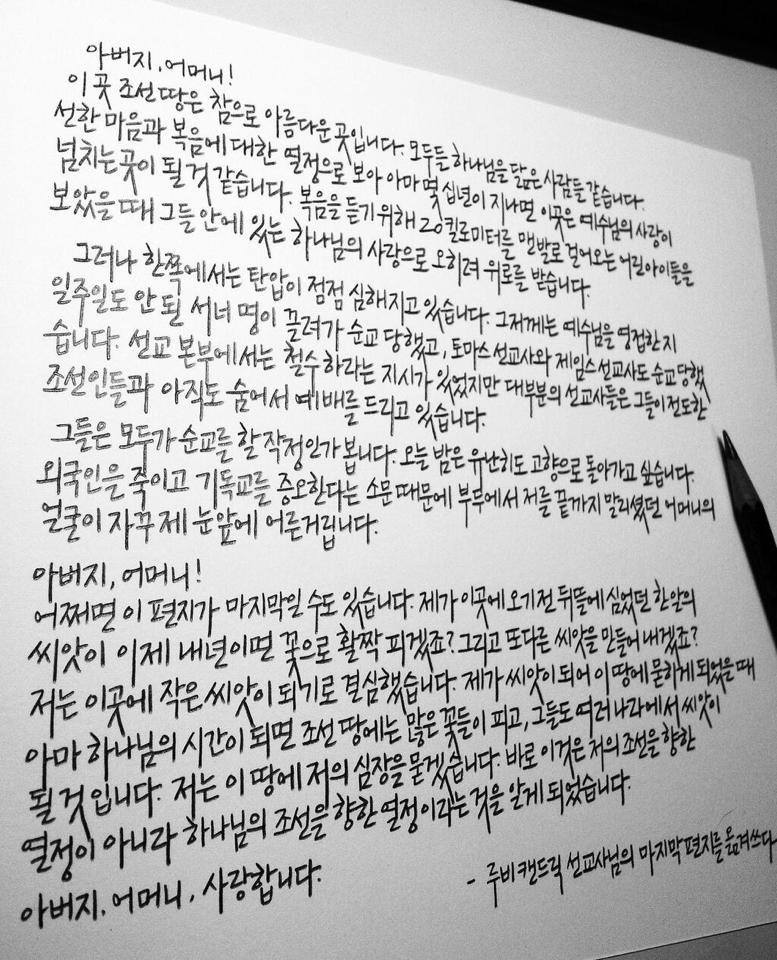 아버지, 어머니!
이 곳 조선땅은 참으로 아름다운 곳입니다. 모두들 하나님을 닮은 사람들 같습니다.
선한 마음과 복음에 대한 열정으로 보아 아마 몇 십년이 지나면 이곳은 예수님의 사랑이
넘치는 곳이 될 것 같습니다. 복음을 듣기 위해 20킬로미터를 맨발로 걸어오는 어린아이들을
보았을 때 그들 안에 있는 하나님의 사랑으로 오히려 위로를 받습니다.
그러나 한쪽에서는 탄압이 점점 심해지고 있습니다. 그저께는 예수님을 영접한지
일주일도 안 된 서너 명이 끌려가 순교 당했고, 토마스 선교사와 제임스 선교사도 순교 당했
습니다. 선교 본부에서는 철수하라는 지시가 있었지만 대부분의 선교사들은 그들이 전도한
조선인들과 아직도 숨어서 예배를 드리고 있습니다.
그들은 모두가 순교를 할 작정인가 봅니다. 오늘 밤은 유난히도 고향으로 돌아가고 싶습니다.
외국인을 죽이고 기독교를 증오한다는 소문 때문에 부두에서 저를 끝까지 말리셨던 어머니의
얼굴이 자꾸 제 눈앞에 어른거립니다.
아버지, 어머니!
어쩌면 이 편지가 마지막일 수도 있습니다. 제가 이곳에 오기 전 뒤뜰에 심었던 한 알의
씨앗이 이제 내년이면 꽃으로 활짝 피겠죠? 그리고 또 다른 씨앗을 만들어 내겠죠?
저는 이곳에 작은 씨앗이 되기로 결심했습니다. 제가 씨앗이 되어 이 땅에 묻히게 되었을 때
아마 하나님의 시간이 되면 조선 땅에는 많은 꽃들이 피고, 그들도 여러 나라에서 씨앗이
될 것입니다. 저는 이 땅에 저의 심장을 묻겠습니다. 바로 이것은 저의 조선을 향한
열정이 아니라 하나님의 조선을 향한 열정이라는 것을 알게 되었습니다.
아버지, 어머니, 사랑합니다.
- 루비 캔드릭 선교사님의 마지막 편지를 옮겨쓰다